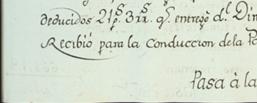 deducidos 21p.s 3rr.s q.e entregò d.l Din
Recibiò para la Conduccion dela Pa
Pasa à la